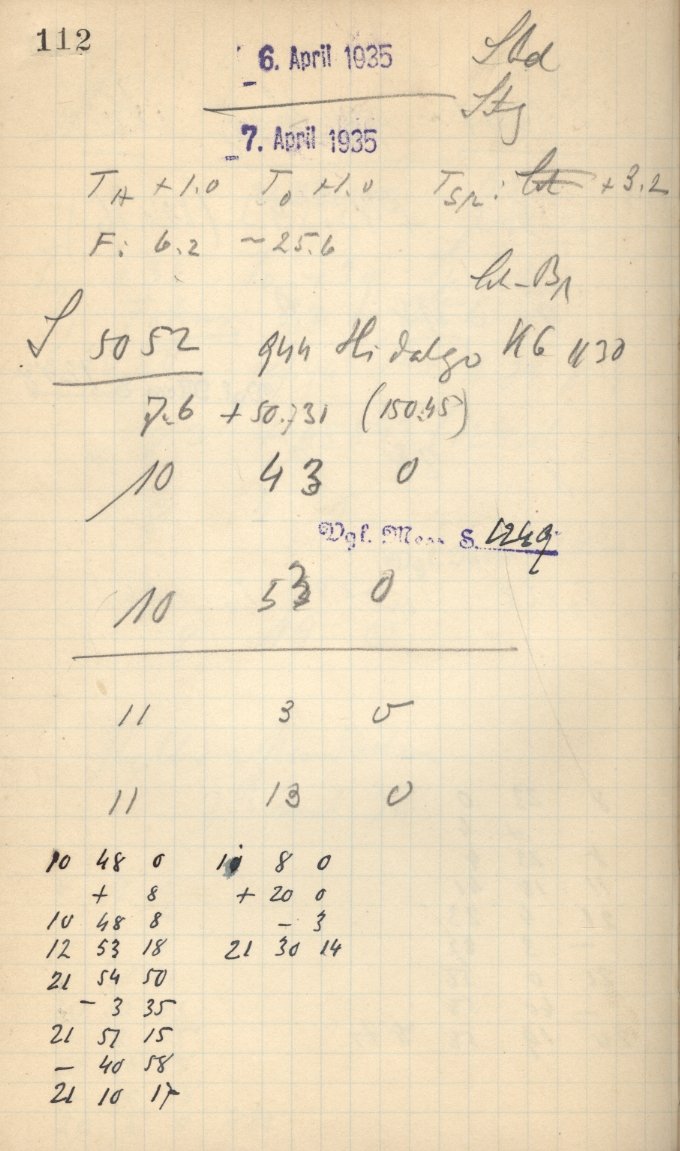 112
6. April 1935 Sbd
Stg
7. April 1935
T_A +1.0 T_O +1.0 T_Sp: +3.2
F: 6.2 – 25.6
S 5052 944 Hidalgo K6 1130
7.6 +50.731 (150.45)
10 43 0
Vgl. Mess S. 1249
10 53 0
11 3 0
11 13 0
10 48 0 8 0
+ 8 + 20 0
10 48 8 – 3
12 53 18 21 30 14
21 54 50
– 3 35
21 51 15
– 40 58
21 10 17